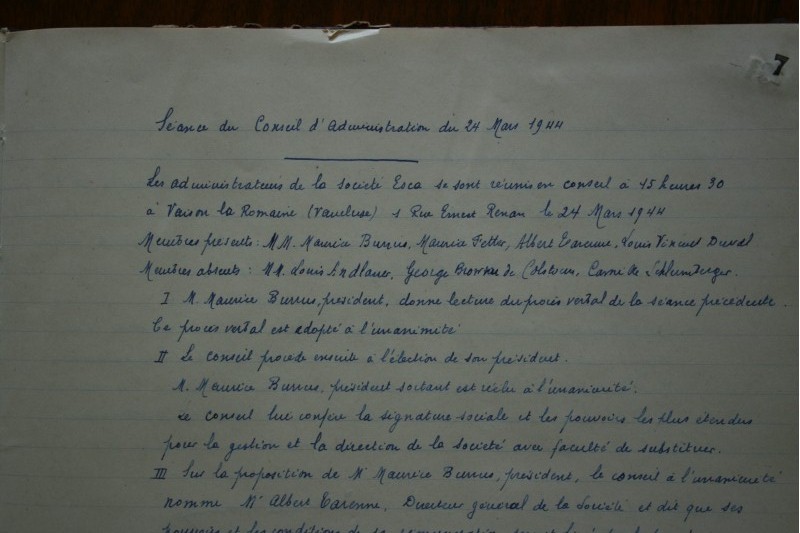 7
Séance du Conseil d'Administration du 24 Mars 1944
Les administrateurs de la société Esca se sont réunis en conseil à 15 heures 30
à Vaison la Romaine (Vaucluse) 1 Rue Ernest Renan le 24 Mars 1944
Membres présents : MM. Maurice Burrus, Maurice Fetter, Albert Louis Vincent Duval
Membres absents : MM. Louis Andlauer, George Browne de Colstoun, Camille Schlumberger.
I M. Maurice Burrus, président, donne lecture du procès verbal de la séance précédente.
Ce procès verbal est adopté à l'unanimité
II Le conseil procède ensuite à l'élection de son président.
M. Maurice Burrus, président sortant est réélu à l'unanimité.
Le conseil lui confère la signature sociale et les pouvoirs les plus étendus
pour la gestion et la direction de la société avec faculté de substituer.
III Sur la proposition de Mr Maurice Burrus, président, le conseil à l'unanimité
nomme Mr Albert Directeur général de la Société et dit que ses
pouvoirs et les conditions de sa